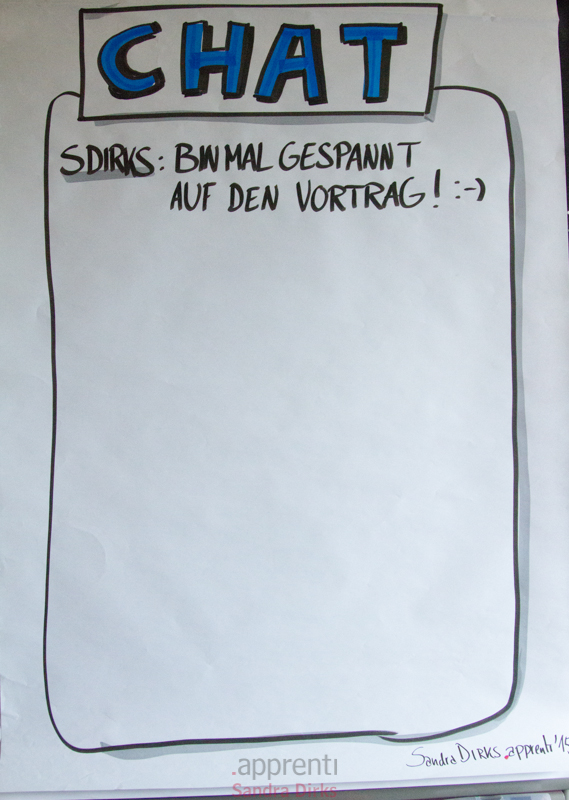 CHAT
SDIRKS: BIN MAL GESPANNT
AUF DEN VORTRAG! :-)
Sandra DIRKS .apprenti '15
.apprenti
Sandra Dirks